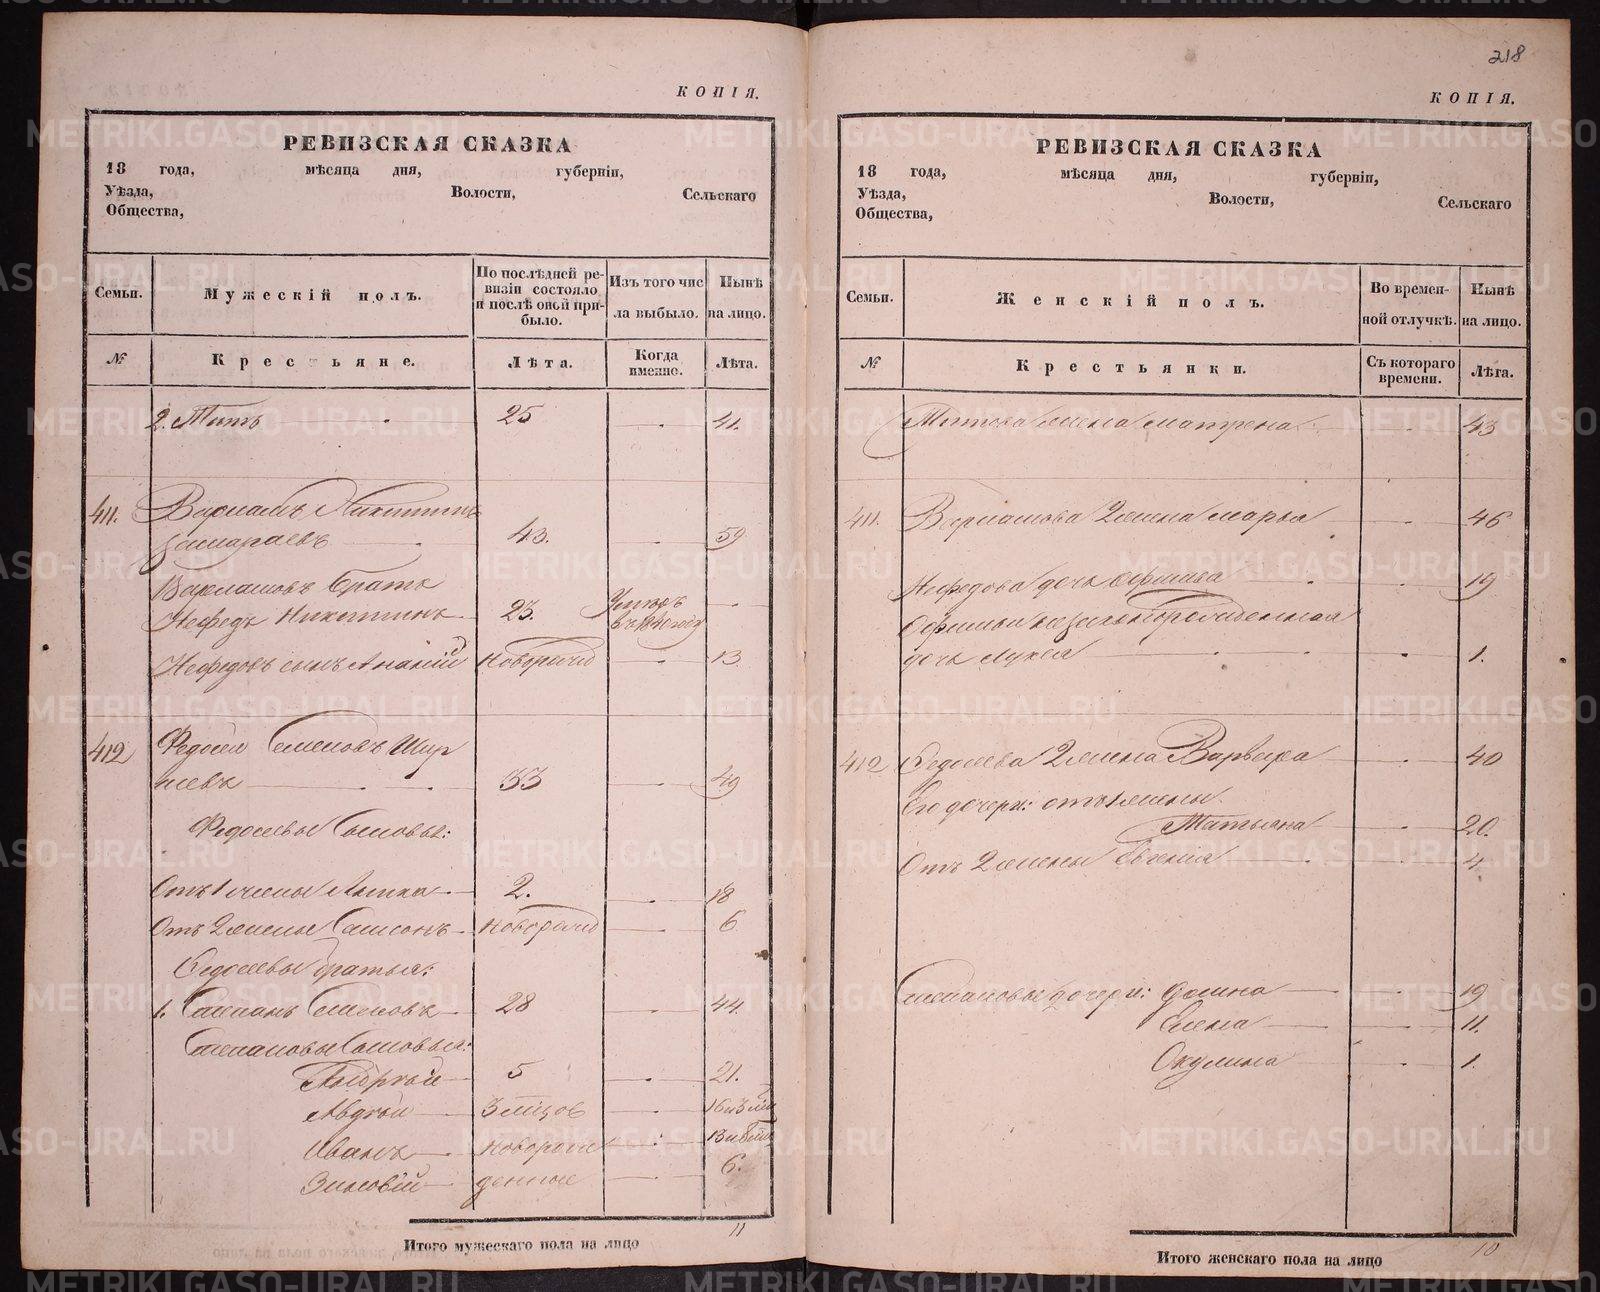 КОПІЯ.
РЕВИЗСКАЯ СКАЗКА
18 года, мѣсяца дня, губерніи,
Уѣзда, Волости, Сельскаго
Общества,
Семьи. Мужескій полъ. По послѣдней ревизіи состояло и послѣ оной прибыло. Изъ того числа выбыло. Нынѣ на лицо.
№ Крестьяне. Лѣта. Когда именно. Лѣта.
2. Титъ 25 41.
411. Варламъ Никитинъ
43. 59
Варламовъ братъ
Нефедъ Никитинъ 23. Умеръ в 1840 году
Нефедовъ сынъ Ананій новорожд 13
412 Федосей Семеновъ Шир
яевъ 33 49
Федосеевы сыновья:
Отъ 1 жены 2. 18
Отъ 2 жены Самсонъ новорожд 6
Федосеевы братья:
1. Степанъ Семеновъ 28 44.
Степановы сыновья:
5 21.
Авдѣй 3 мѣсцов 16 и 3 мѣс
Иванъ новорож
Зиновій денные 6.
Итого мужескаго пола на лицо 11
218
КОПІЯ.
РЕВИЗСКАЯ СКАЗКА
18 года, мѣсяца дня, губерніи,
Уѣзда, Волости, Сельскаго
Общества,
Семьи. Женскій полъ. Во временной отлучкѣ. Нынѣ на лицо.
№ Крестьянки. Съ котораго времени. Лѣта.
Титова жена Матрена 43
411. Варламова 2 жена Марья 46
Нефедова дочь Офимья 19
Офимьи незаконнорожденная
дочь Лукея 1.
412 Федосеева 2 жена Варвара 40
Его дочери: отъ 1 жены
Татьяна 20.
Отъ 2 жены Евгенія 4
Степановы дочери: Домна 19
Елена 11.
Окулина 1.
Итого женскаго пола на лицо 10
METRIKI.GASO-URAL.RU